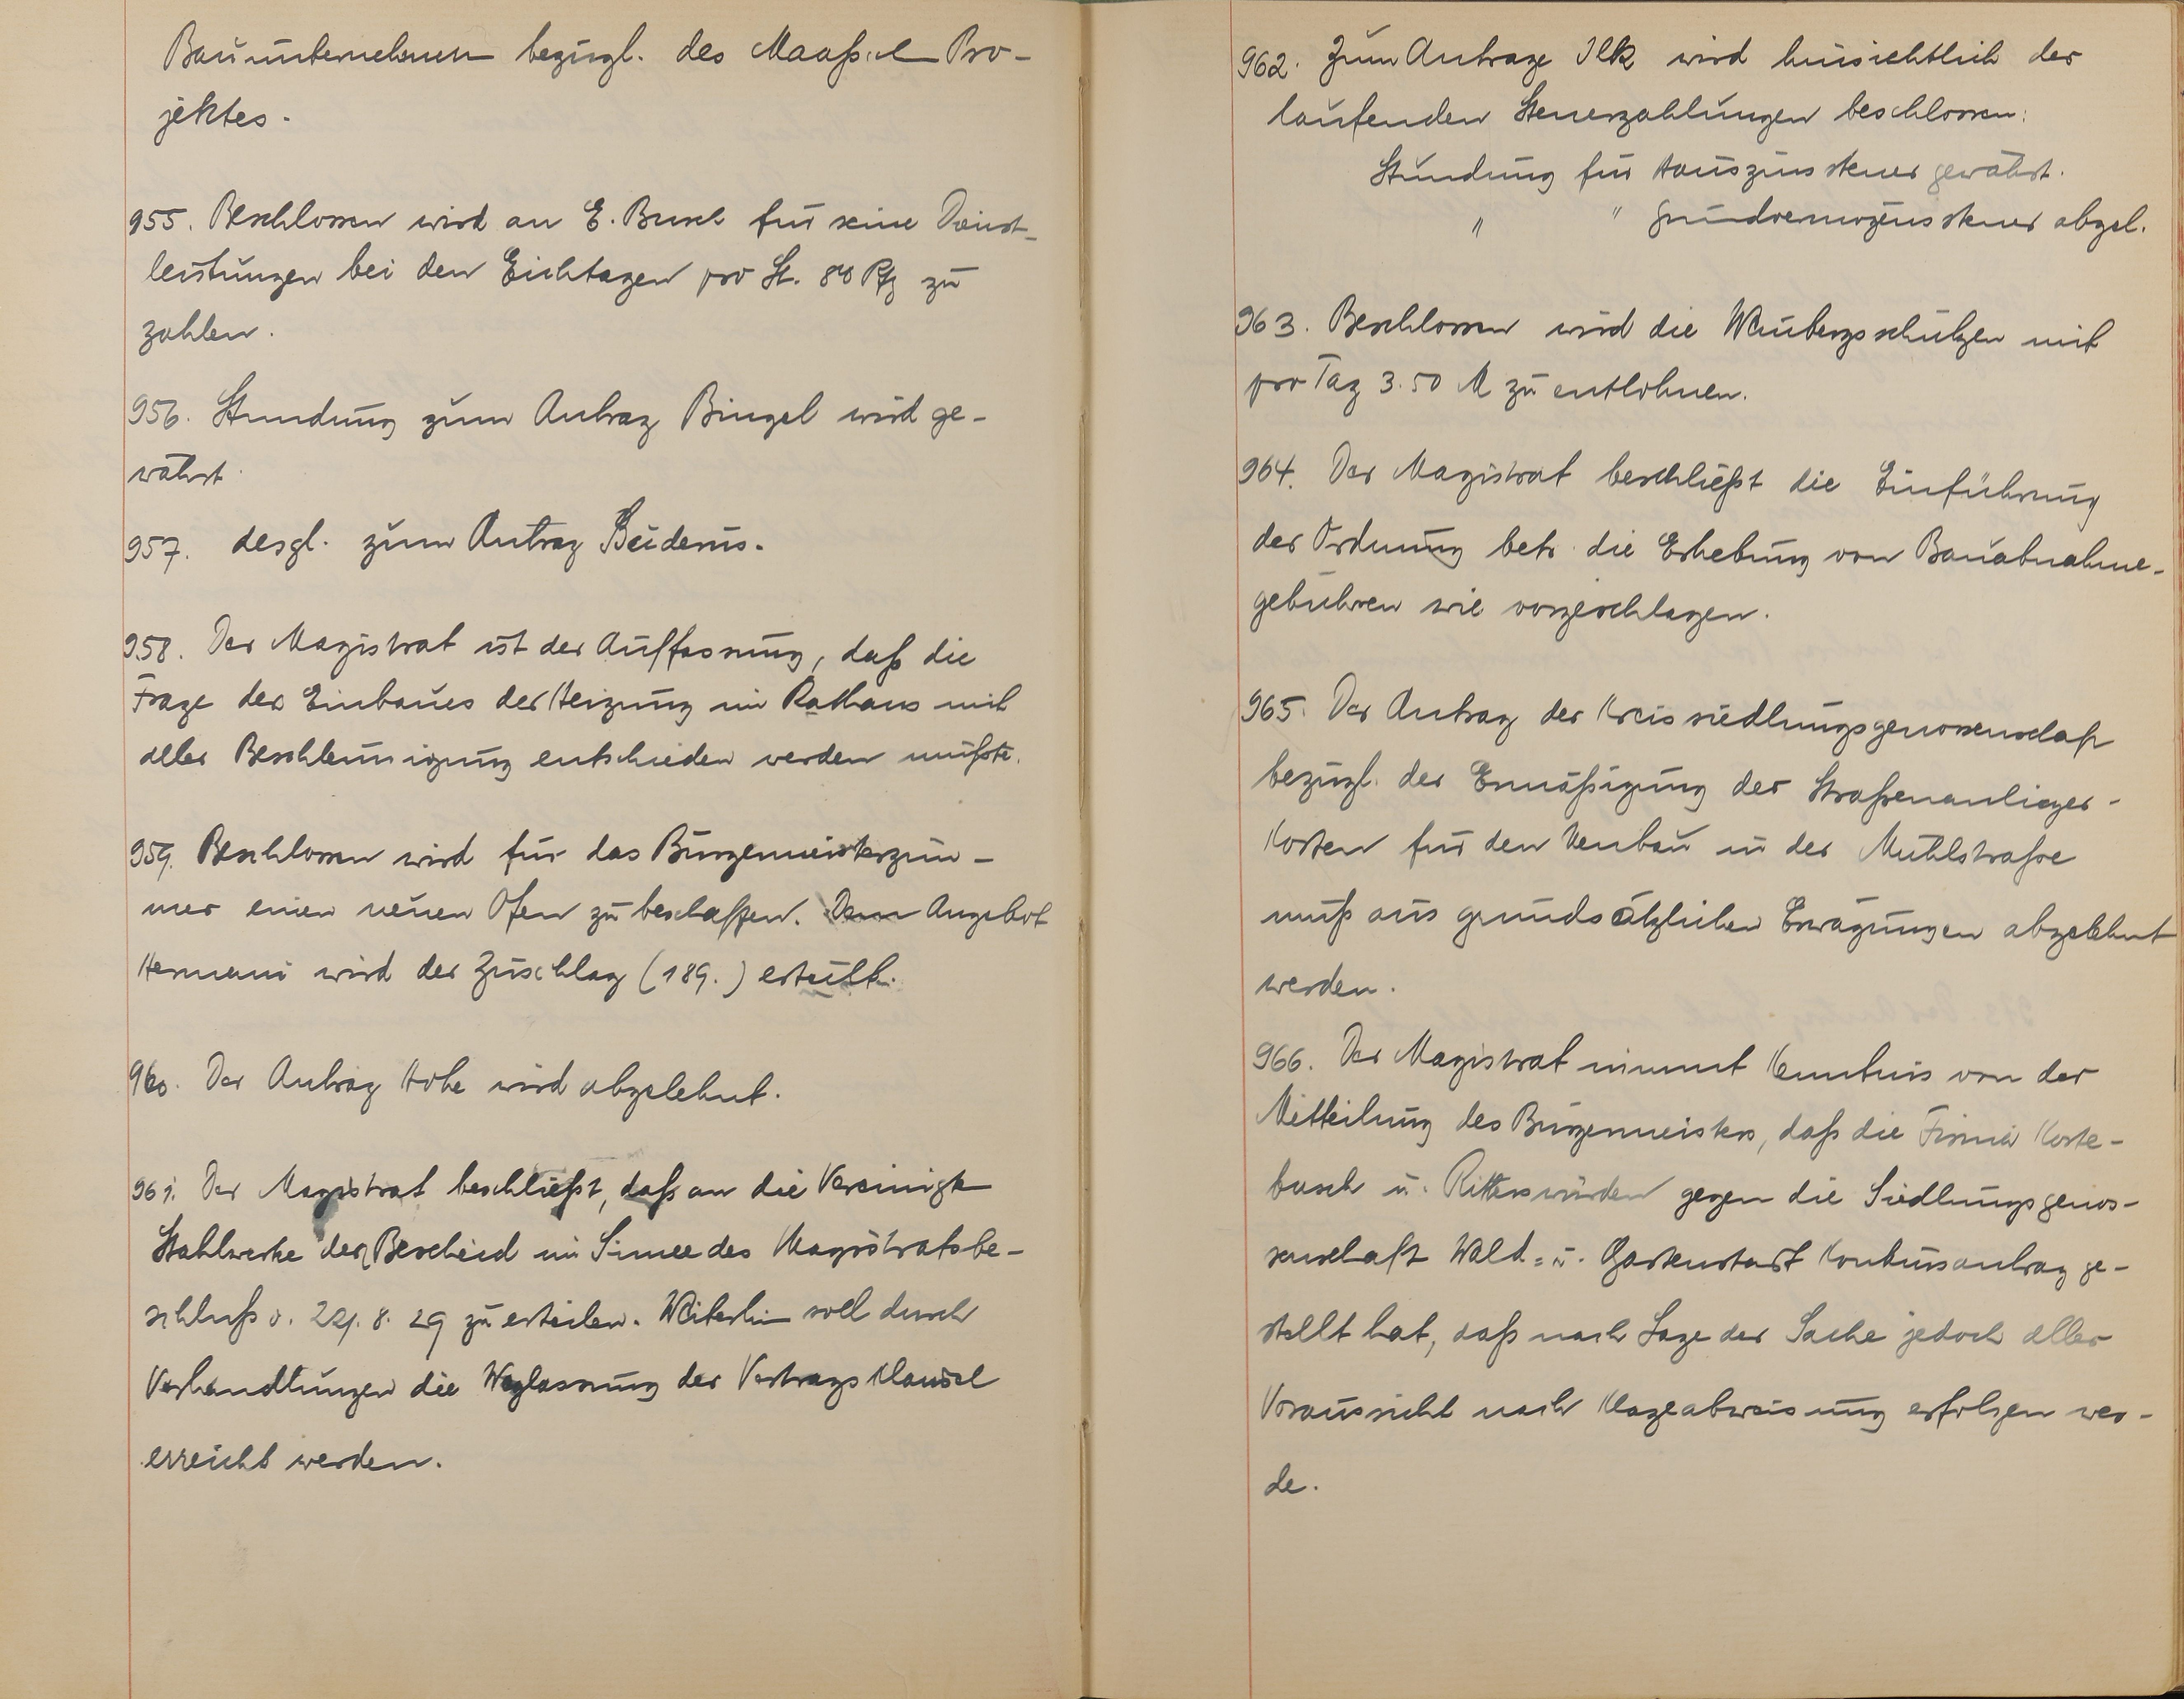 Bauunternehmen bezügl. des Maaß'schen Pro-
jektes.
955. Beschlossen wird an E. Busch für seine Dienst-
leistungen bei den Eichtagen pro St. 80 Pfg zu
zahlen.
956. Stundung zum Antrag Bingel wird ge-
währt.
957. desgl. zum Antrag Buderus.
958. Der Magistrat ist der Auffassung, daß die
Frage des Einbaues der Heizung im Rathaus mit
aller Beschleunigung entschieden werden müßte.
959. Beschlossen wird für das Bürgermeisterzim-
mer einen neuen Ofen zu beschaffen. Dem Angebot
Hermani wird der Zuschlag (189.) erteilt.
960. Der Antrag Hohe wird abgelehnt.
961. Der Magistrat beschließt, daß an die Vereinigte
Stahlwerke der Bescheid im Sinne des Magistratsbe-
schluß v. 221. 8. 29 zu erteilen. Weiterhin soll durch
Verhandlungen die Weglassung der Vertrags Klausel
erreicht werden.
962. Zum Antrage Ilk wird hinsichtlich der
laufenden Steuerzahlungen beschlossen:
Stundung für Hauszinssteuer gewährt.
" " Grundvermögenssteuer abgel.
963. Beschlossen wird die Weinbergsschützen mit
pro Tag 3.50 M zu entlohnen.
964. Der Magistrat beschließt die Einführung
der Ordnung betr. die Erhebung von Bauabnahme-
gebühren wie vorgeschlagen.
965. Der Antrag der Kreissiedlungsgenossenschaft
bezügl. der Ermäßigung der Straßenanlieger-
Kosten für den Neubau in der Mühlstraße
muß aus grundsätzlichen Erwägungen abgelehnt
werden.
966. Der Magistrat nimmt Kenntnis von der
Mitteilung des Bürgermeisters, daß die Firma Korte-
busch u. Ritterswürden gegen die Siedlungsgenos-
senschaft Wald- u. Gartenstadt Konkursantrag ge-
stellt hat, daß nach Lage der Sache jedoch aller
Voraussicht nach Klageabweisung erfolgen wer-
de.